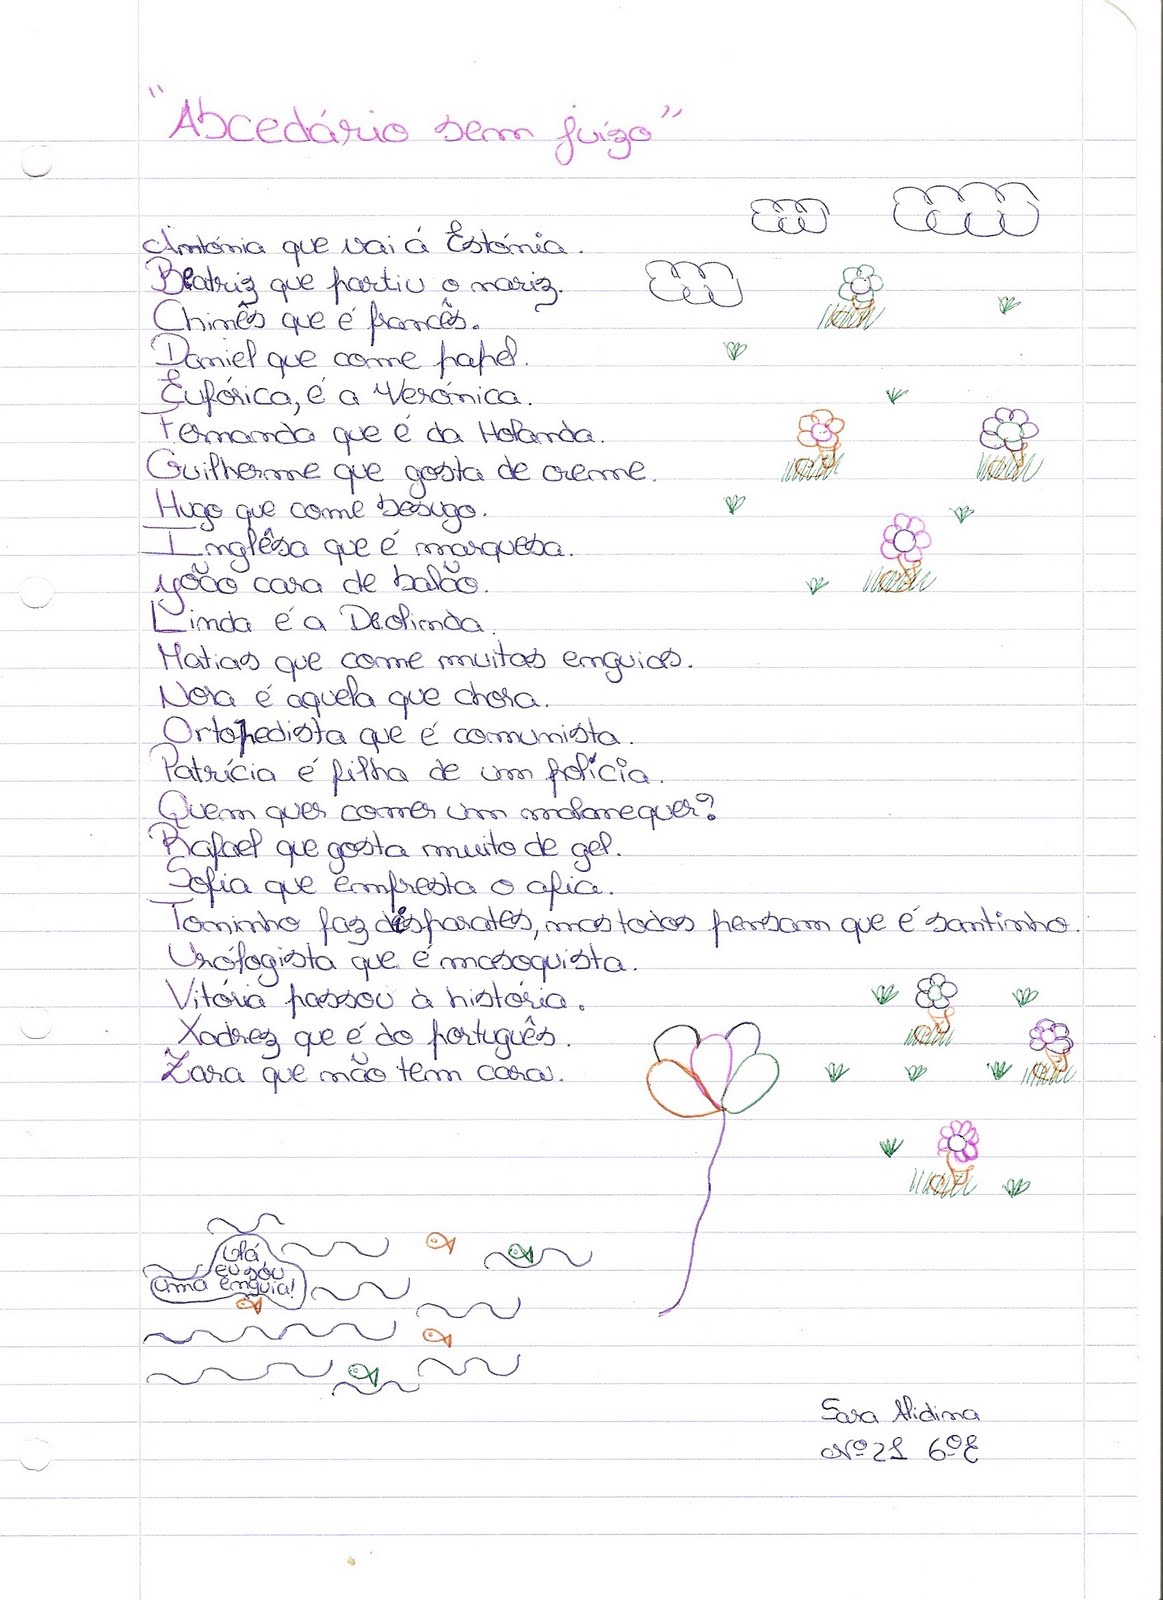 "Abcedário sem juízo"
Antónia que vai á Estónia.
Beatriz que partiu o nariz.
Chinês que é francês.
Daniel que come papel.
Eufórica, é a Verónica.
Fernanda que é da Holanda.
Guilherme que gosta de creme.
Hugo que come besugo.
Inglêsa que é marquesa.
João cara de balão.
Linda é a Deolinda.
Matias que come muitas enguias.
Nora é aquela que chora.
Ortopedista que é comunista.
Patrícia é filha de um polícia.
Quem quer comer um malmequer?
Rafael que gosta muito de gel.
Sofia que empresta o afia.
Toninho faz disparates, mas todos pensam que é santinho.
Urologista que é masoquista.
Vitória passou à história.
Xadrez que é do português.
Zara que não tem cara.
Olá
eu sou
uma enguia!
Sara
Nº21 6ºE